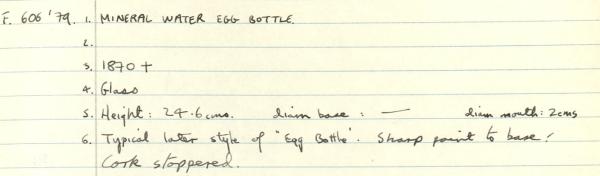 F. 606 '79. 1. MINERAL WATER EGG BOTTLE.
2.
3. 1870 +
4. Glass
5. Height: 24.6 cms. diam base: — diam mouth: 2cms
6. Typical later style of "Egg Bottle". Sharp point to base!
Cork stoppered.